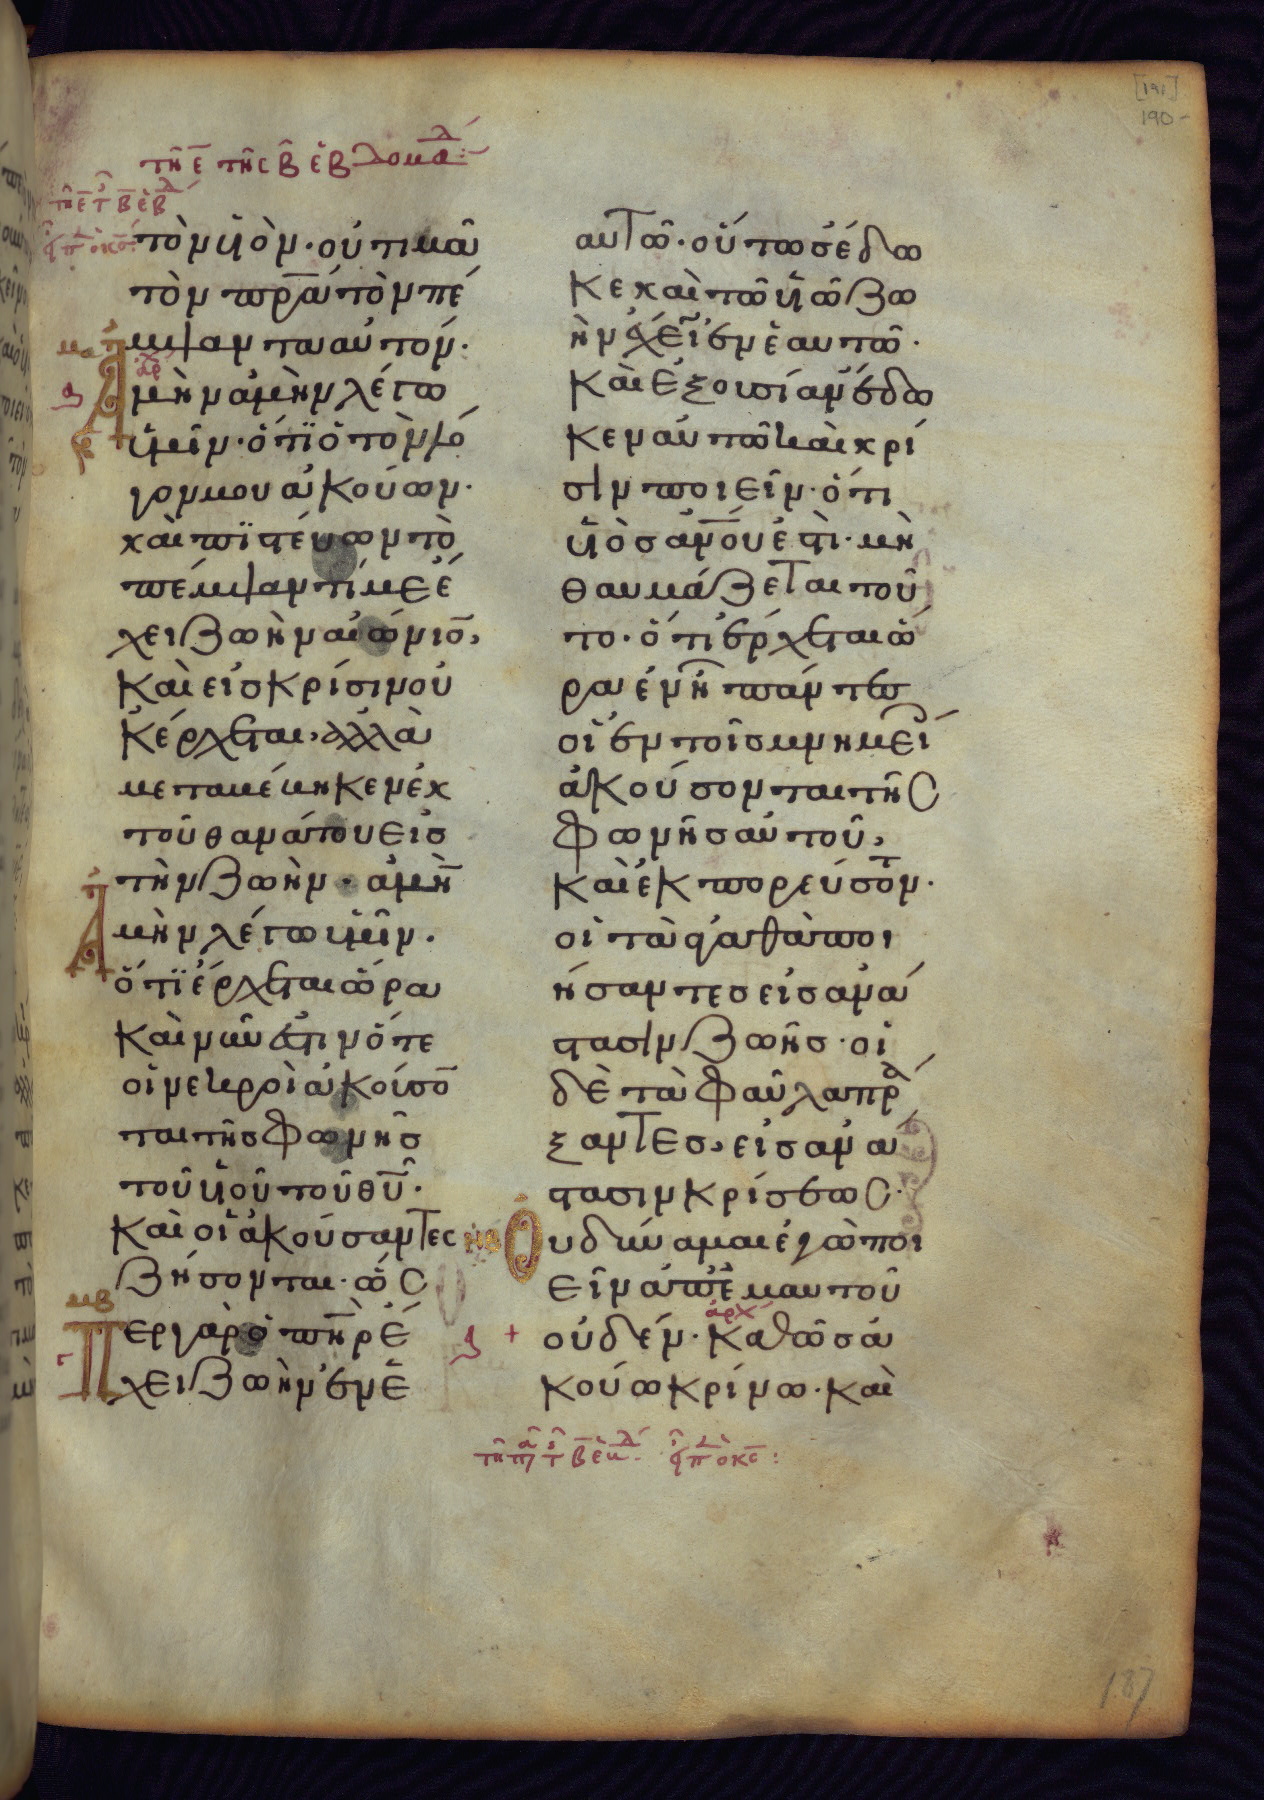 [191]
190
τῆ ε̄ τῆς β̄ ἑβδομαδ
τὸν υἱὸν· οὐ τιμᾶ
τὸν πρ̅α τὸν πέ
μψαντα αὐτόν·
Ἀμὴν ἀμὴν λέγω
ὑμῖν· ὅτι ὁ τὸν λό
γον μου ἀκούων·
καὶ πιστεύων τῶ
πέμψαντί με ἔ
χει ζωὴν αἰώνιο̅,
καὶ εἰς κρίσιν οὐ
κ ἔρχεται, ἀλλὰ
μεταβέβηκεν ἐκ
τοῦ θανάτου εἰς
τὴν ζωὴν· ἀμὴ̅
Ἀμὴν λέγω ὑμῖν·
ὅτι ἔρχεται ὥρα
καὶ νῦν ἐστιν ὅτε
οἱ νεκροὶ ἀκούσο̅
ται τῆς φωνῆς
τοῦ υἱοῦ τοῦ θ̅υ̅·
καὶ οἱ ἀκούσαντες
ζήσονται· ὥς
Περ γὰρ ὁ π̅η̅ρ ἔ
χει ζωὴν ἐν ἑ
αυτῶ· οὕτως ἔδω
κε καὶ τῶ υἱῶ ζω
ὴν ἔχειν ἐν ἑαυτῶ·
καὶ ἐξουσίαν ἔδω
κεν αὐτῶ καὶ κρί
σιν ποιεῖν· ὅτι
υἱὸς ἀ̅ν̅ο̅υ ἐστὶ· μὴ
θαυμάζεται τοῦ
το· ὅτι ἔρχεται ὥ
ρα ἐν ἧ πάντες
οἱ ἐν τοῖς μνημεί
ἀκούσονται τῆς
φωνῆς αὐτοῦ,
καὶ ἐκπορεύσοντ·
οἱ τὰ ἀγαθὰ ποι
ήσαντες εἰς ἀνά
στασιν ζωῆς· οἱ
δὲ τὰ φαῦλα πρά
ξαντες, εἰς ἀνά
στασιν κρίσεως·
Οὐ δύναμαι ἐγὼ ποι
εῖν ἀπ' ἐμαυτοῦ
ἀρχ
οὐδέν· Καθὼς ἀ
κούω κρίνω· καὶ
187